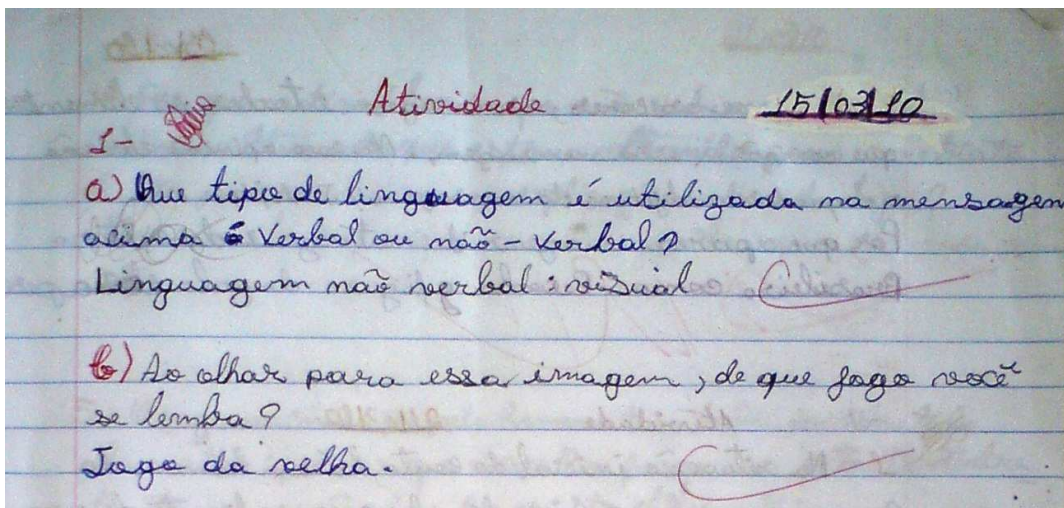 Atividade 15/03/10
1-
a) Que tipo de linguagem é utilizada na mensagem
acima é Verbal ou não-Verbal?
Linguagem não verbal: visual
b) Ao olhar para essa imagem, de que jogo você
se lemba?
Jogo da velha.